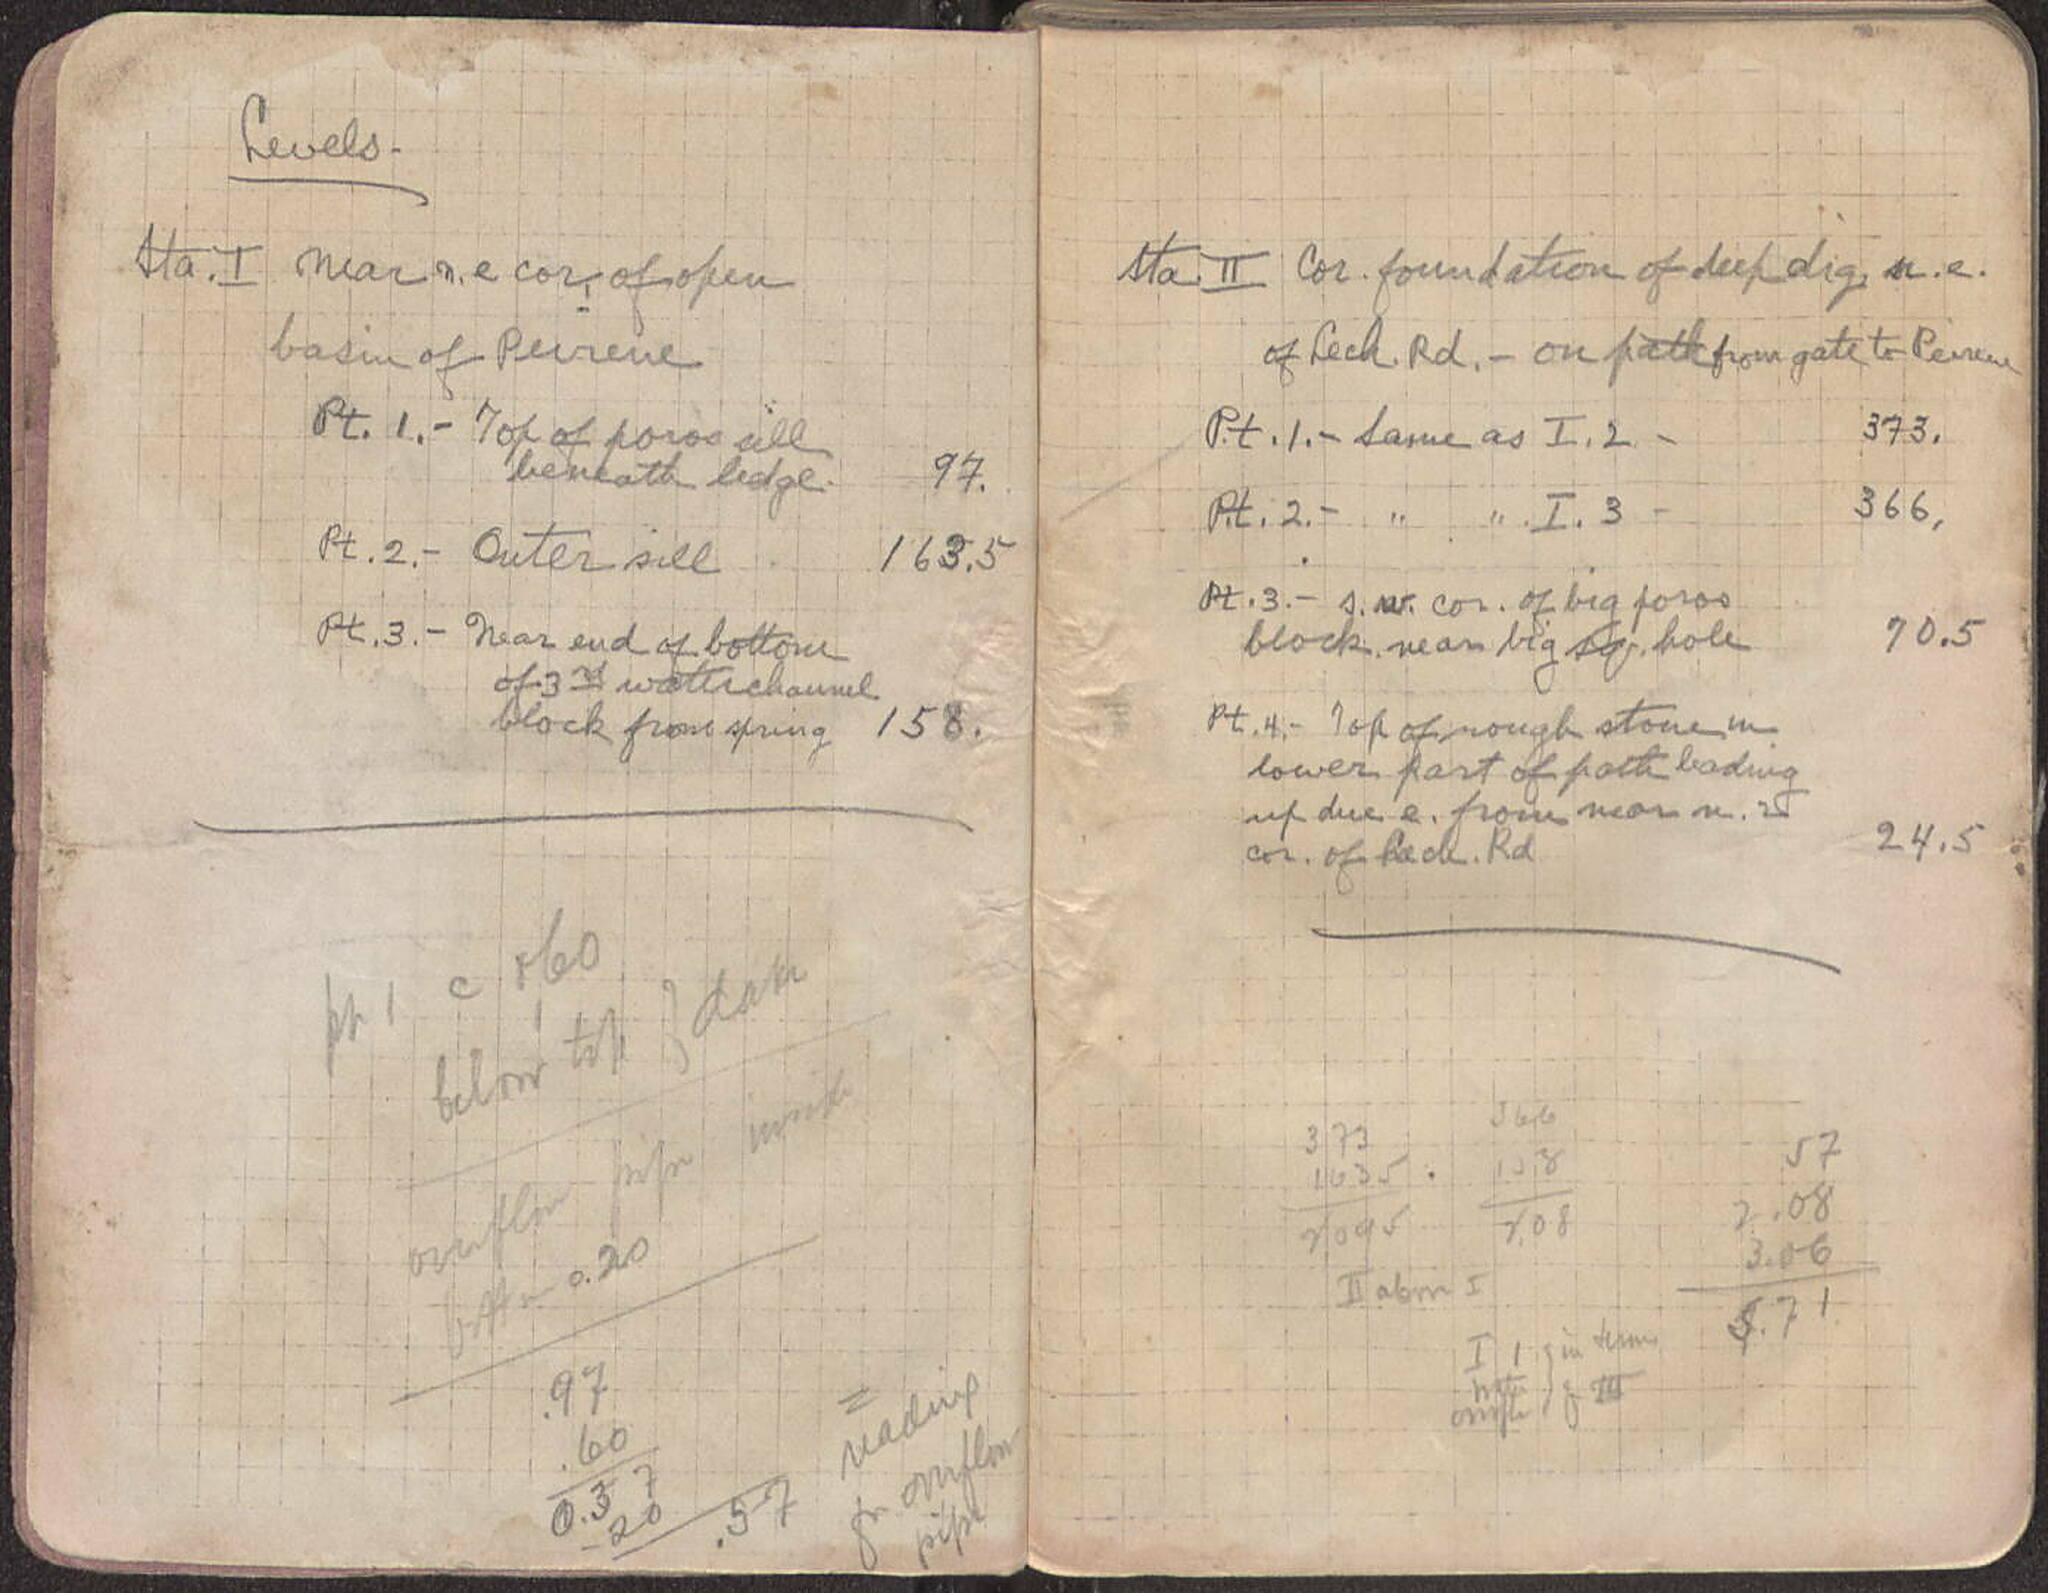 Levels -
Sta. I Near n.e cor. of open
basin of Peirene
Pt. 1. - Top of poros sill
beneath ledge. 97.
Pt. 2. - Outer sill 163.5
Pt. 3. - Near end of bottom
of 3rd waterchannel
block from spring 158.
pt 1 c .60
below top of dam
overflow pipe inside
bottom 0.20
.97
.60
0.37
.20
.57
= reading
for overflow
pipe
Sta. II Cor. foundation of deep dig, n.e.
of Lech. Rd. - on path from gate to Peirene
Pt. 1. - Same as I. 2 - 373.
Pt. 2. - " " I. 3 - 366.
Pt. 3. - s.w. cor. of big poros
block near big sq. hole 70.5
Pt. 4. - Top of rough stone in
lower part of path leading
up due e. from near n.e
cor. of Lech. Rd 24.5
373
1635
2095
366
158
2.08
II above I
57
2.08
3.06
5.71
I 1 in terms
of III